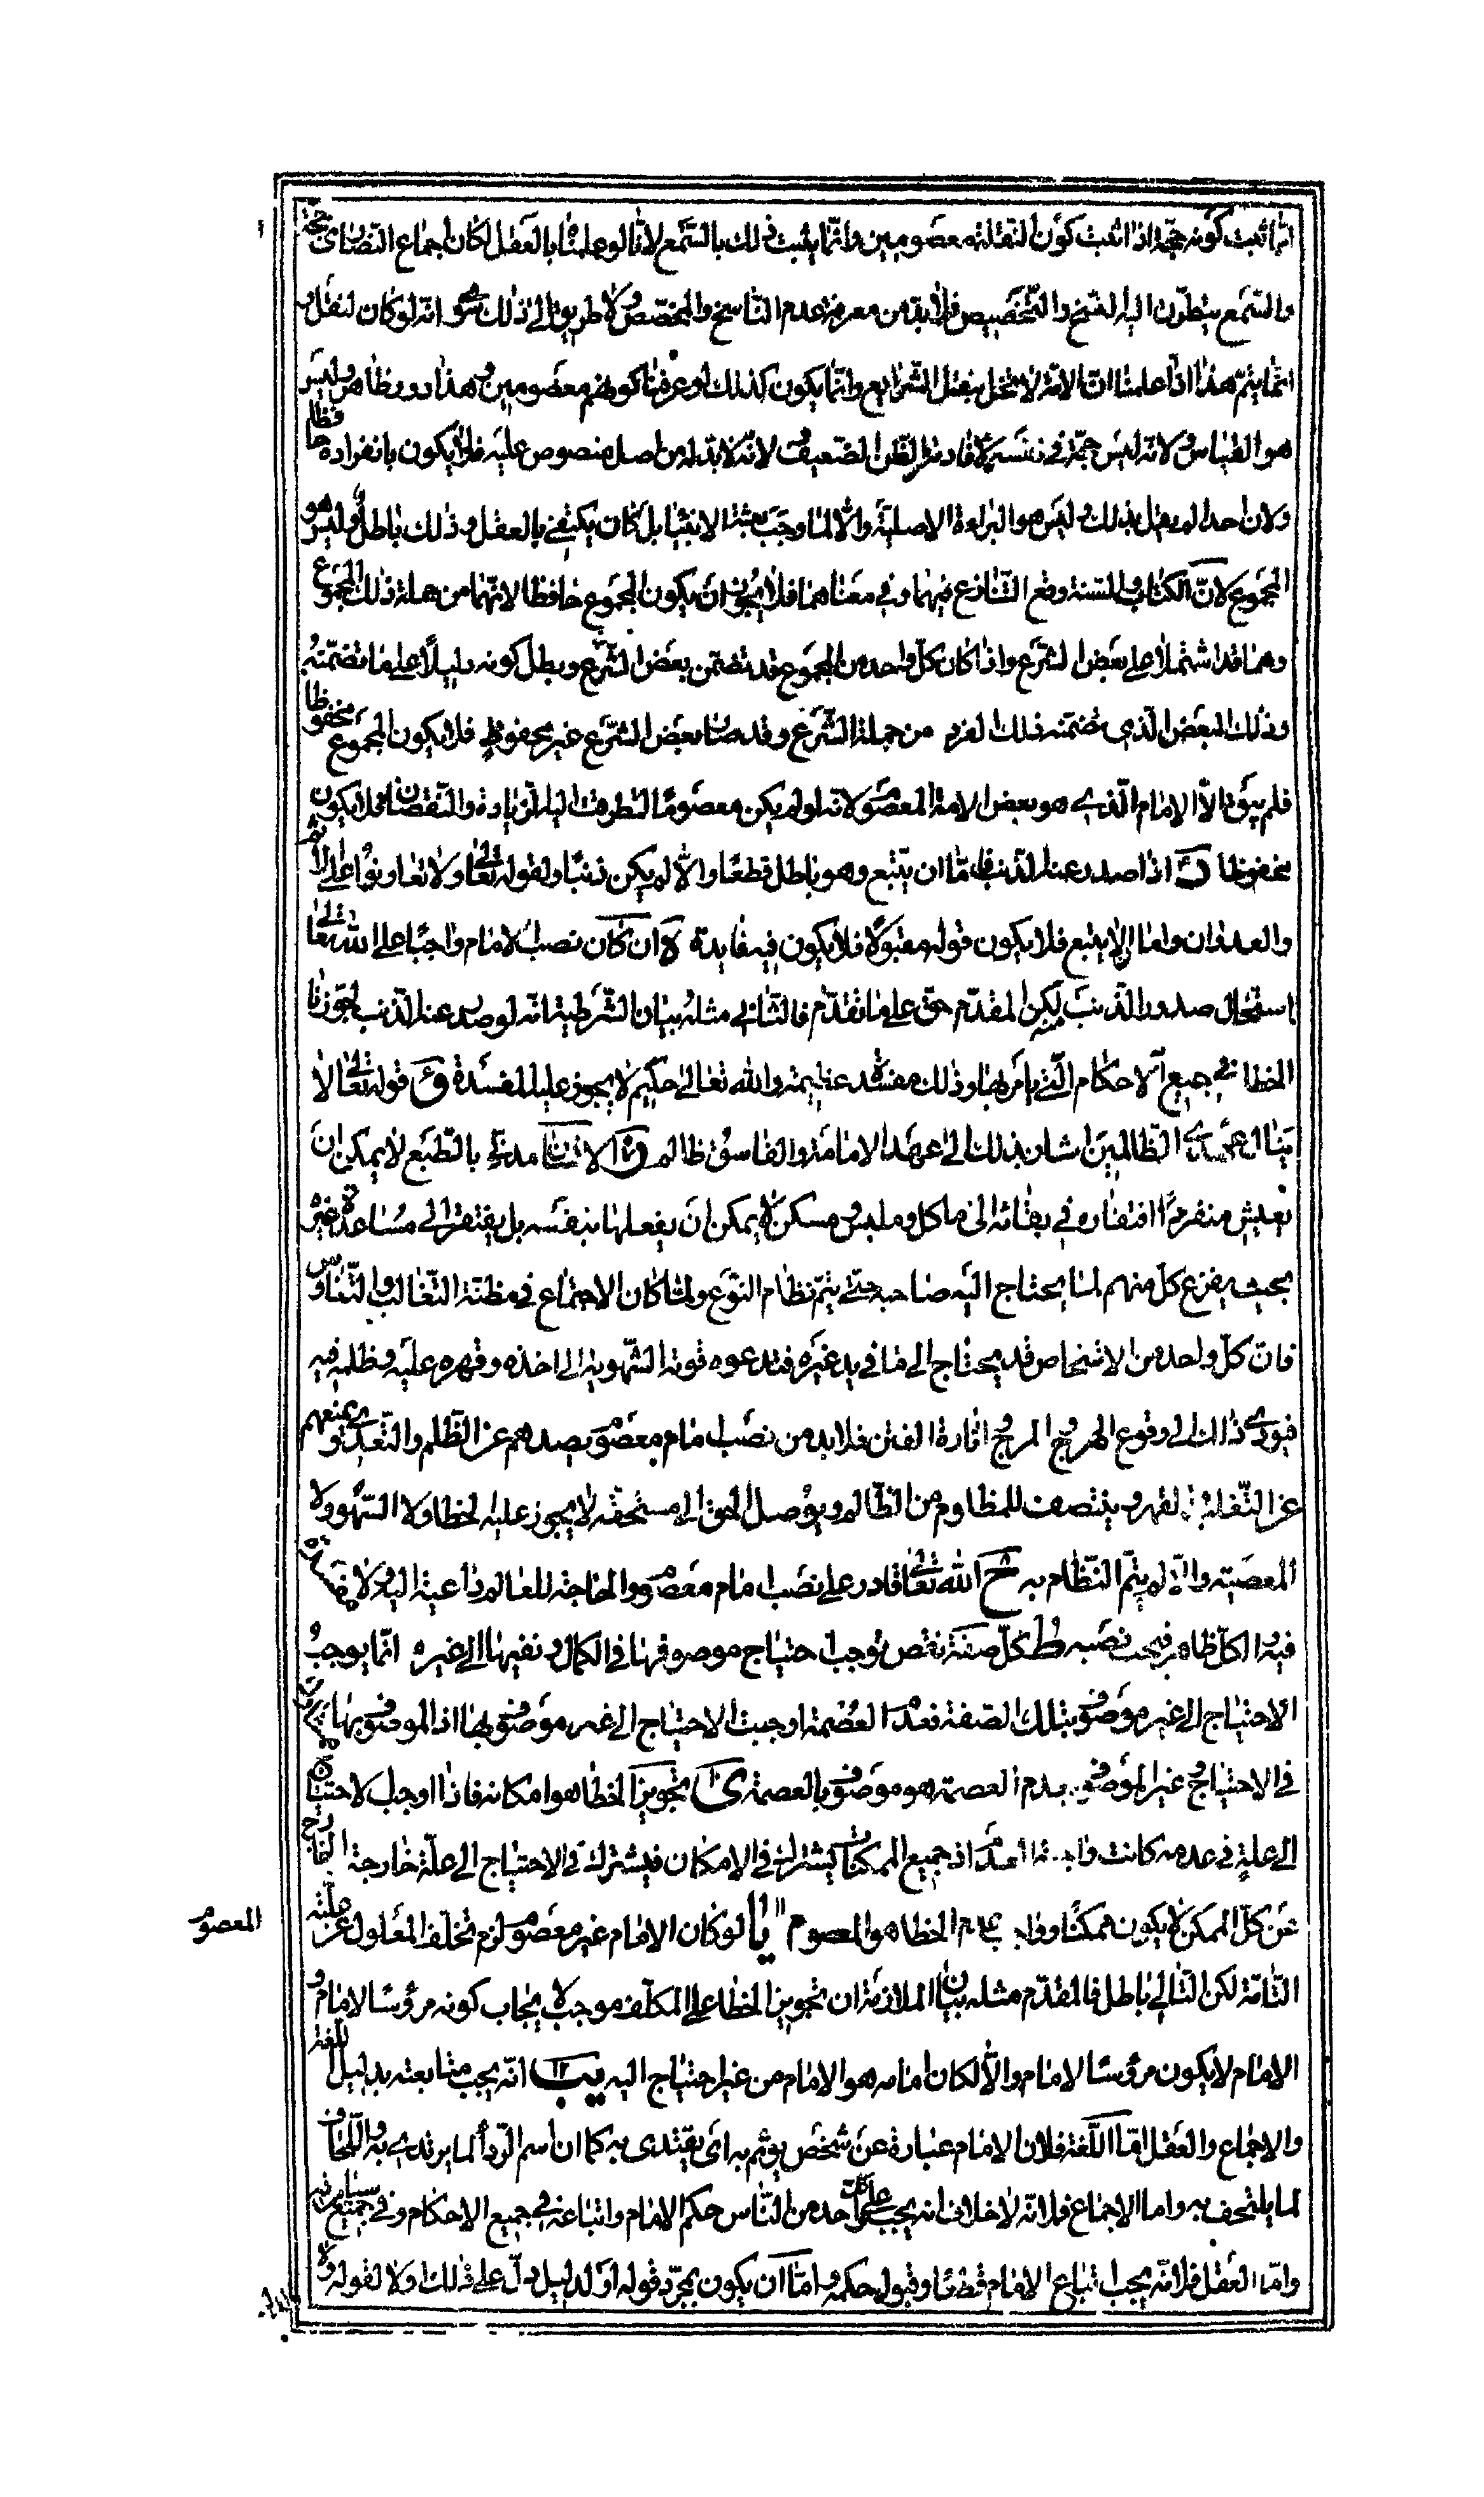 انما ثبت كونه حجة اذا ثبت كون النقلة معصومين وانما يثبت ذلك بالسمع لانا لو علمناه بالعقل لكان اجماع النصارى حجة
والسمع يتطرق اليه النسخ والتخصيص فلا بد من معرفة عدم الناسخ والمخصص ولا طريق الى ذلك سوى انه لو كان لنقل و
انما يتم هذا اذا علمنا ان الامة لا تخل بنقل الشرايع وانما يكون كذلك لو عرفنا كونهم معصومين وهذا دور ظاهر وليس
هو القياس لانه ليس حجة في نفسه لافادته الظن الضعيف ولانه لا بد له من اصل منصوص عليه فلا يكون بانفراده حافظا
ولان احدا لم يقل بذلك وليس هو البراءة الاصلية والا لما وجب بعثة الانبياء بل كان يكتفى بالعقل وذلك باطل وليس هو
المجموع لان الكتاب والسنة وقع التنازع فيهما وفي معناهما فلا يجوز ان يكون المجموع حافظا لانهما من جملة ذلك المجموع
وهما قد اشتملا على بعض الشرع واذا كان كل واحد من المجموع قد تضمن بعض الشرع وبطل كونه دليلا على ما تضمنه
وذلك البعض الذي تضمنه ذلك الفرد من جملة الشرع وقد صار بعض الشرع غير محفوظ فلا يكون المجموع محفوظا
فلم يبق الا الامام الذي هو بعض الامة المعصوم لانه لو لم يكن معصوما لتطرقت اليه الزيادة والنقصان فلا يكون
محفوظا اذا صدر عنه الذنب فاما ان يتبع وهو باطل قطعا والا لم يكن ذنبا ولقوله تعالى ولا تعاونوا على الاثم
والعدوان واما ان لا يتبع فلا يكون قوله مقبولا فلا يكون فيه فايدة ان كان نصب الامام واجبا على الله تعالى
استحال صدور الذنب لكن المقدم حق على ما تقدم فالتالي مثله بيان الشرطية انه لو صدر عنه الذنب لجوزنا
الخطا في جميع الاحكام التي يامر بها وذلك مفسدة عظيمة والله تعالى حكيم لا يجوز عليه المفسدة قوله تعالى لا
ينال عهدي الظالمين اشار بذلك الى عهد الامامة والفاسق ظالم الانسان مدني بالطبع لا يمكن ان
يعيش منفردا لافتقاره في بقائه الى ماكل وملبس ومسكن لا يمكن ان يفعلها بنفسه بل يفتقر الى مساعدة غيره
بحيث يفزع كل منهم لما يحتاج اليه صاحبه حتى يتم نظام النوع ولما كان الاجتماع في مظنة التغالب والتناوس
فان كل واحد من الاشخاص قد يحتاج الى ما في يد غيره فتدعوه قوته الشهوية الى اخذه وقهره عليه وظلمه فيه
فيؤدي ذلك الى وقوع الهرج والمرج واثارة الفتن فلا بد من نصب امام معصوم يصدهم عن الظلم والتعدي ويمنعهم
عن التغلب والقهر وينتصف للمظلوم من الظالم ويوصل الحق الى مستحقه لا يجوز عليه الخطا ولا السهو ولا
المعصية والا لم يتم النظام به الله تعالى قادر على نصب امام معصوم والحاجة للعالم داعية اليه ولا مفسدة
فيه والكل ظاهر فيجب نصبه ط كل صفة نقص توجب احتياج موصوفها في الكمال ونفيها الى غيره انما يوجب
الاحتياج الى غير موصوف بتلك الصفة فعدم العصمة اوجبت الاحتياج الى غير موصوف بها اذ الموصوف بها
في الاحتياج وغير الموصوف بعدم العصمة هو موصوف بالعصمة ى تجويز الخطا هو امكانه فاذا اوجب الاحتياج
الى علة في عدمه كانت واجبة العدم اذ جميع الممكنات يشترك في الامكان فيشترك في الاحتياج الى علة خارجة الخارج
عن كل الممكن لا يكون ممكنا وواجب عدم الخطا هو المعصوم يا لو كان الامام غير معصوم لزم تخلف المعلول عن علته
المعصوم
التامة لكن التالي باطل فالمقدم مثله بيان الملازمة ان تجويز الخطا على المكلف موجب لايجاب كونه مرؤسا لامام و
الامام لا يكون مرؤسا لامام والا لكان امامه هو الامام من غير احتياج اليه يب انه يجب متابعته بدليل اللغة
والاجماع والعقل اما اللغة فلان الامام عبارة عن شخص يؤتم به اي يقتدى به كما ان اسم الردا لما يرتدى به واللحاف
لما يلتحف به واما الاجماع فلانه لا خلاف انه يجب على كل واحد من الناس حكم الامام واتباعه في جميع الاحكام وفي جميع
واما العقل فلانه يجب اتباع الامام قطعا وقبول حكمه واما ان يكون بمجرد قوله او لدليل دل على ذلك اولا لقوله ولا